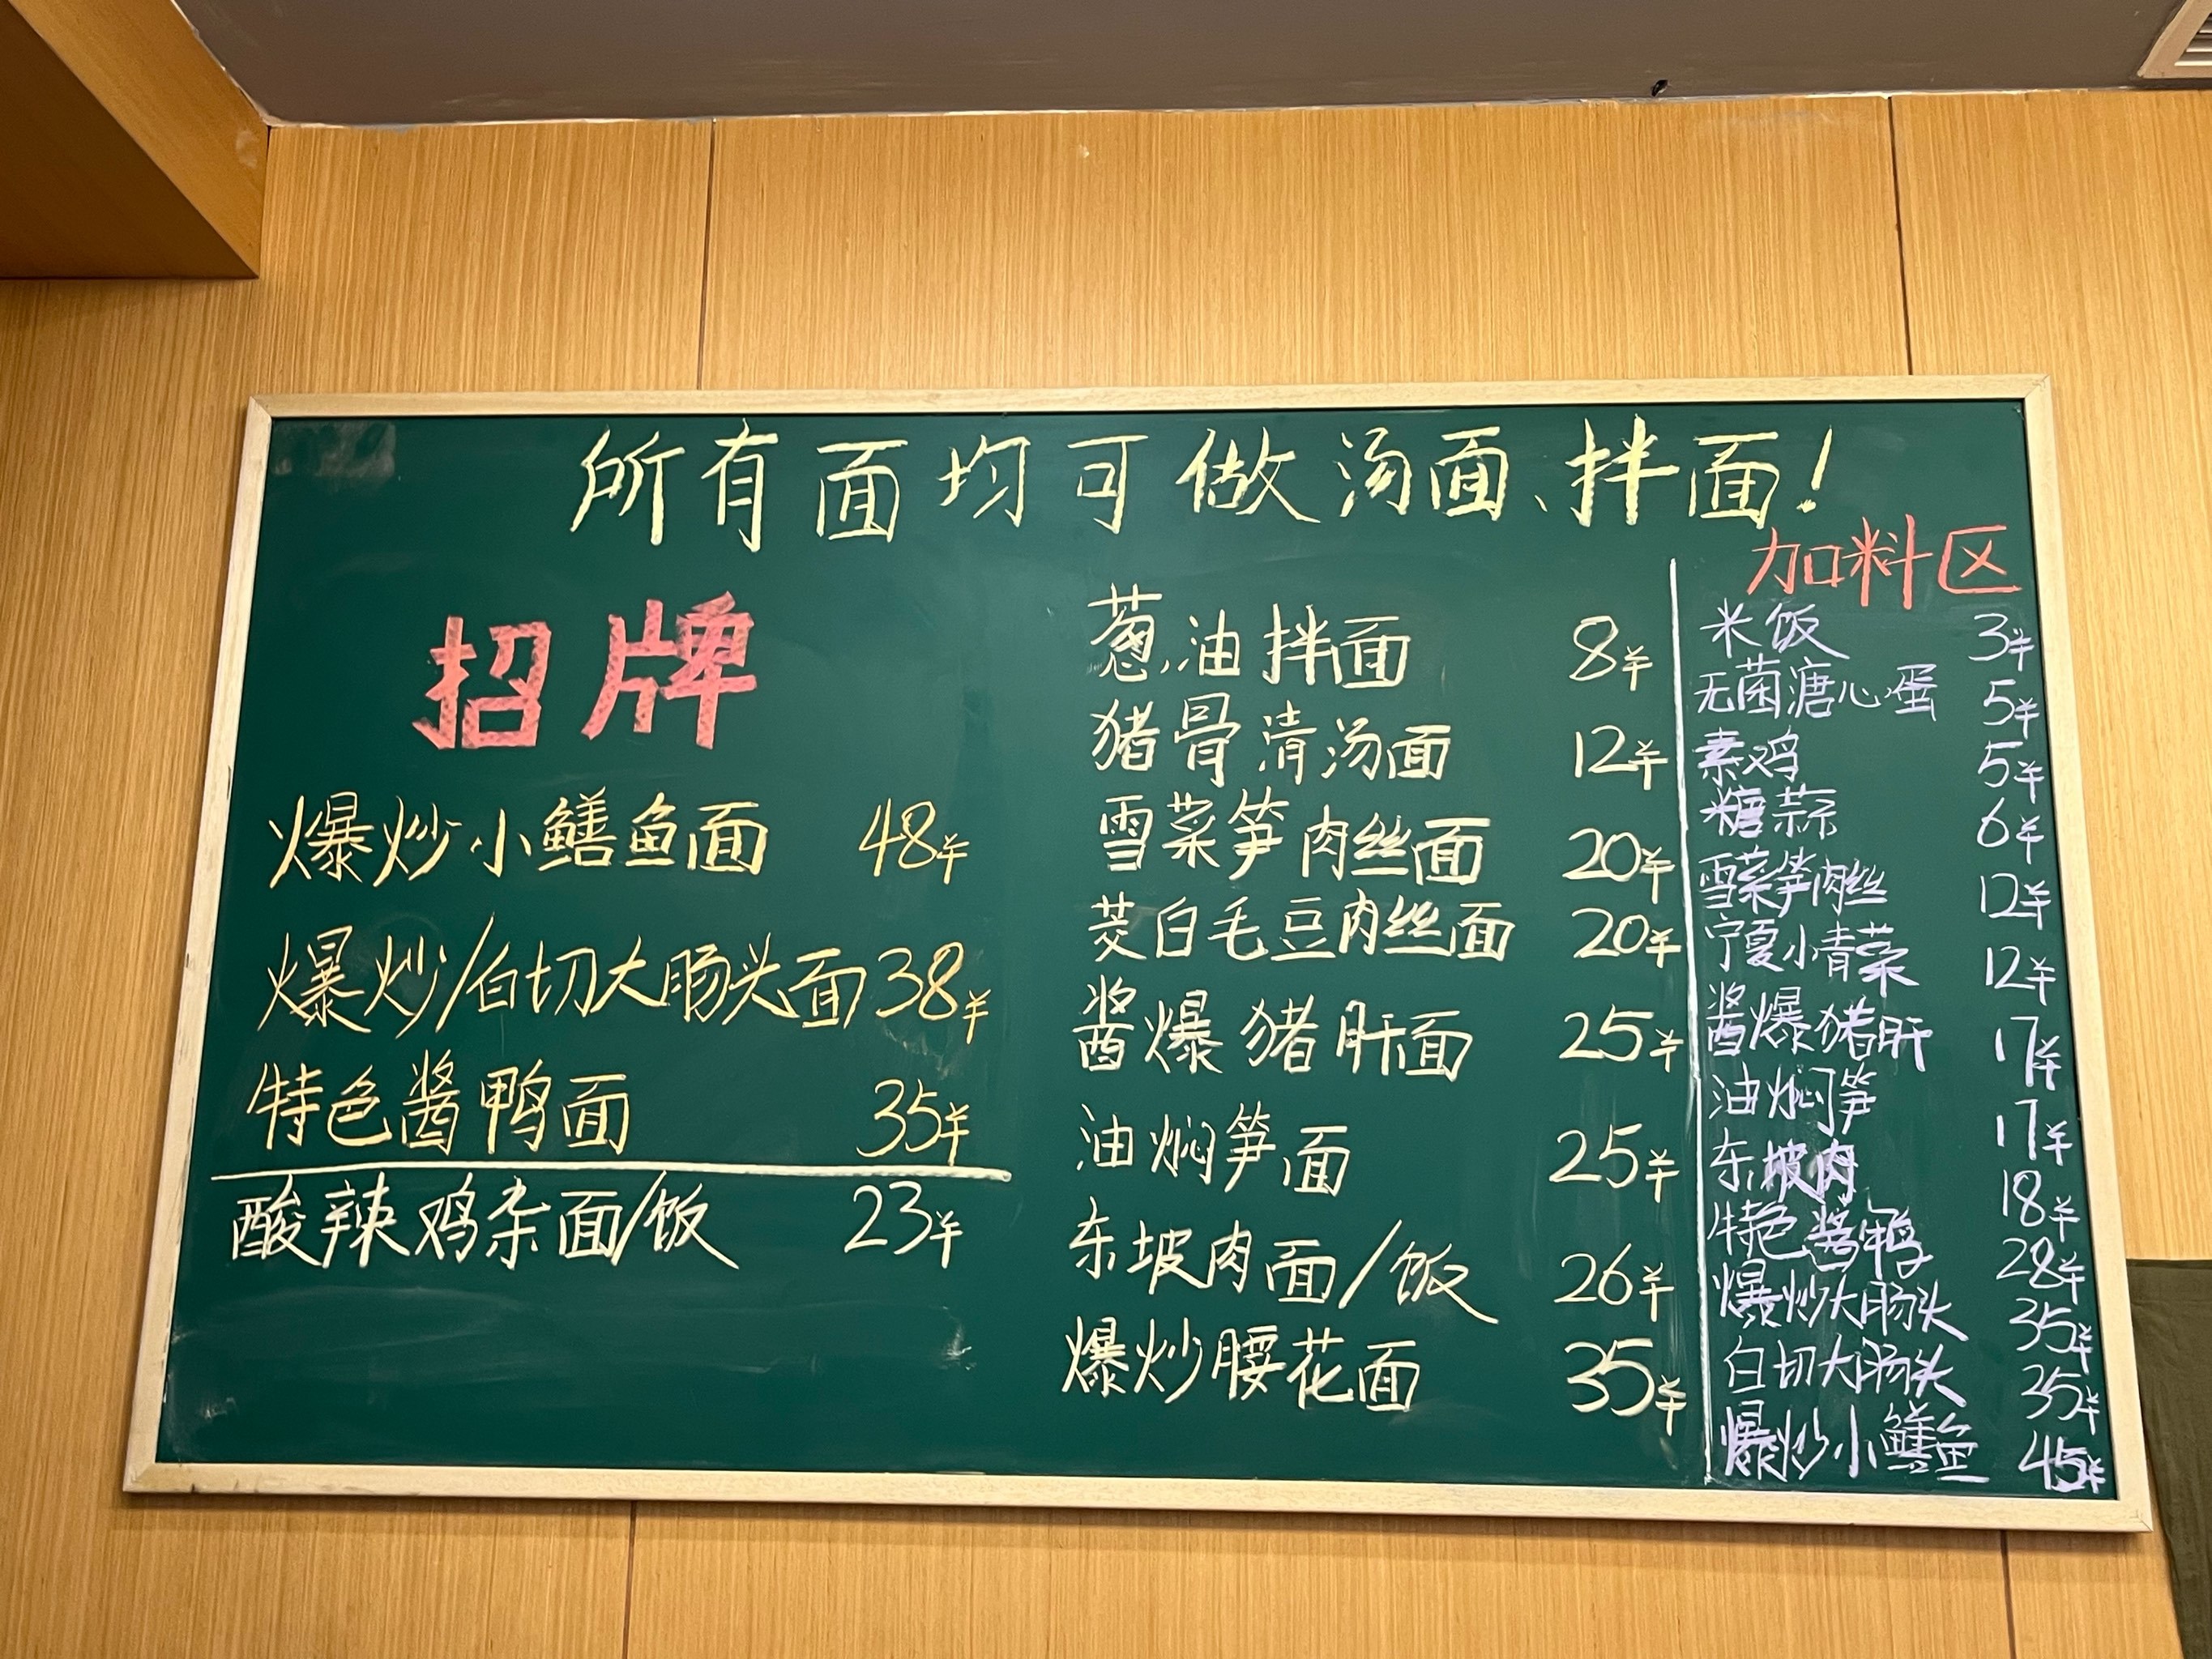 所有面均可做汤面、拌面!
招牌
爆炒小鳝鱼面 48¥
爆炒/白切大肠头面 38¥
特色酱鸭面 35¥
酸辣鸡杂面/饭 23¥
葱油拌面 8¥
猪骨清汤面 12¥
雪菜笋肉丝面 20¥
茭白毛豆肉丝面 20¥
酱爆猪肝面 25¥
油焖笋面 25¥
东坡肉面/饭 26¥
爆炒腰花面 35¥
加料区
米饭 3¥
无菌溏心蛋 5¥
素鸡 5¥
糖蒜 6¥
雪菜笋肉丝 12¥
宁夏小青菜 12¥
酱爆猪肝 17¥
油焖笋 17¥
东坡肉 18¥
特色酱鸭 28¥
爆炒大肠头 35¥
白切大肠头 35¥
爆炒小鳝鱼 45¥